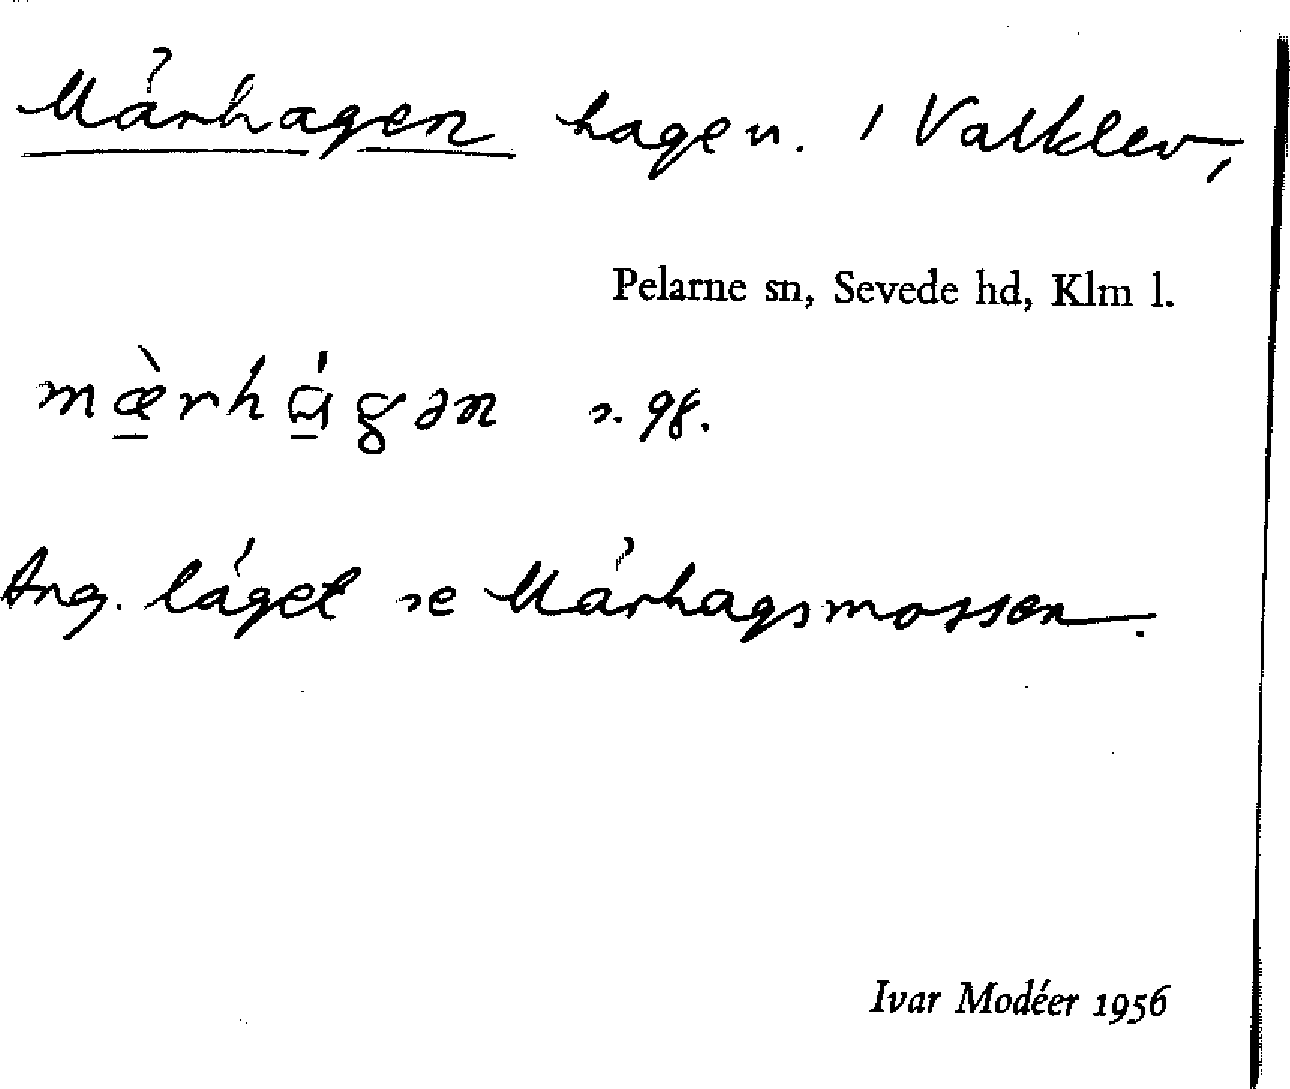 Märhagen hagen. i Valklev,
Pelarne sn, Sevede hd, Klm l.
mæ̱̀rhɑ̱́gən s. 98.
Ang. läget se Märhagsmossen.
Ivar Modéer 1956